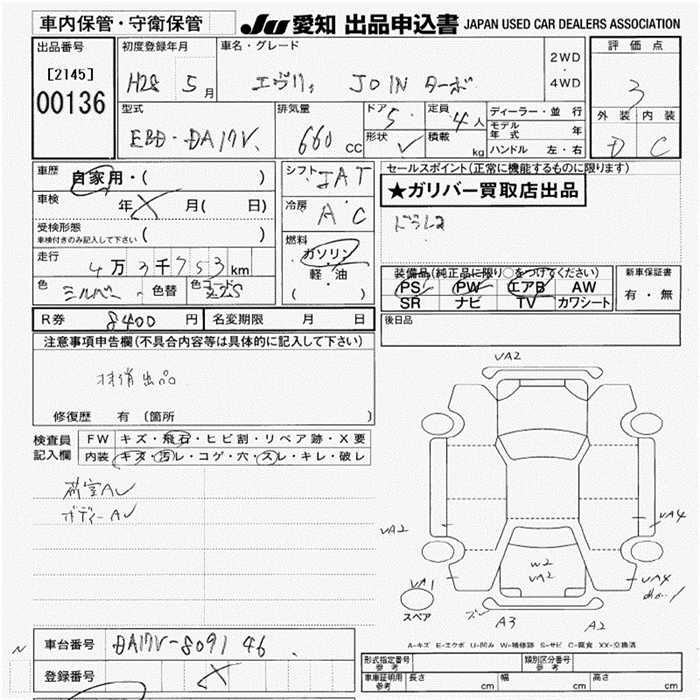 車内保管・守衛保管
JU 愛知 出品申込書 JAPAN USED CAR DEALERS ASSOCIATION
出品番号
[2145]
00136
初度登録年月
H28 5月
車名・グレード
エヴリィ JOIN ターボ
2WD
・
4WD
評価点
3
外装 内装
D C
型式
EBD-DA17V
排気量
660 cc
ドア 5
形状
定員 4人
積載 kg
ディーラー・並 行
モデル年式 年
ハンドル 左・右
車歴
自家用・( )
車検
年 月( 日)
受検形態
車検付きのみ記入して下さい ( )
走行
4万3千753km
色 シルバー 色替 色コード Z2S
シフト IAT
冷房 AC
燃料
ガソリン
軽・油
( )
セールスポイント(正常に機能するものに限ります)
★ガリバー買取店出品
ドラレコ
装備品(純正品に限り○をつけてください)
PS PW エアB AW
SR ナビ TV カワシート
新車保証書
有・無
R券 8400 円 名変期限 月 日
後日品
注意事項申告欄(不具合内容等は具体的に記入して下さい)
抹消出品
修復歴 有 〔箇所 〕
検査員
記入欄
FW キズ・飛石・ヒビ割・リペア跡・X要
内装 キズ・汚レ・コゲ・穴・スレ・キレ・破レ
荷室AU
ボディーAU
VA2
VA2
VA4
W2
VA2
VA1
VA4
スペア
A3
A2
A-キズ E-エクボ U-凹み W-補修跡 S-サビ C-腐食 XX-交換済
車台番号 DA17V-809146
登録番号
型式指定番号
参考
類別区分番号
参考
車庫証明用
参考
長さ cm 幅 cm 高さ cm